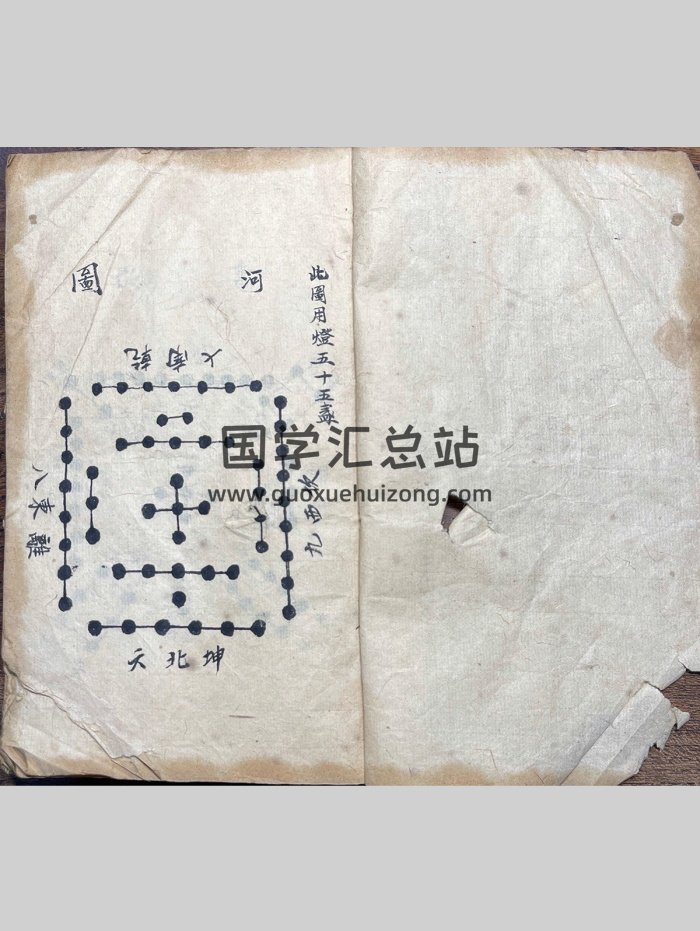 此圖用燈五十五盞
河圖
南乾
九西坎
八東離
北坤
国学汇总站
www.guoxuehuizong.com